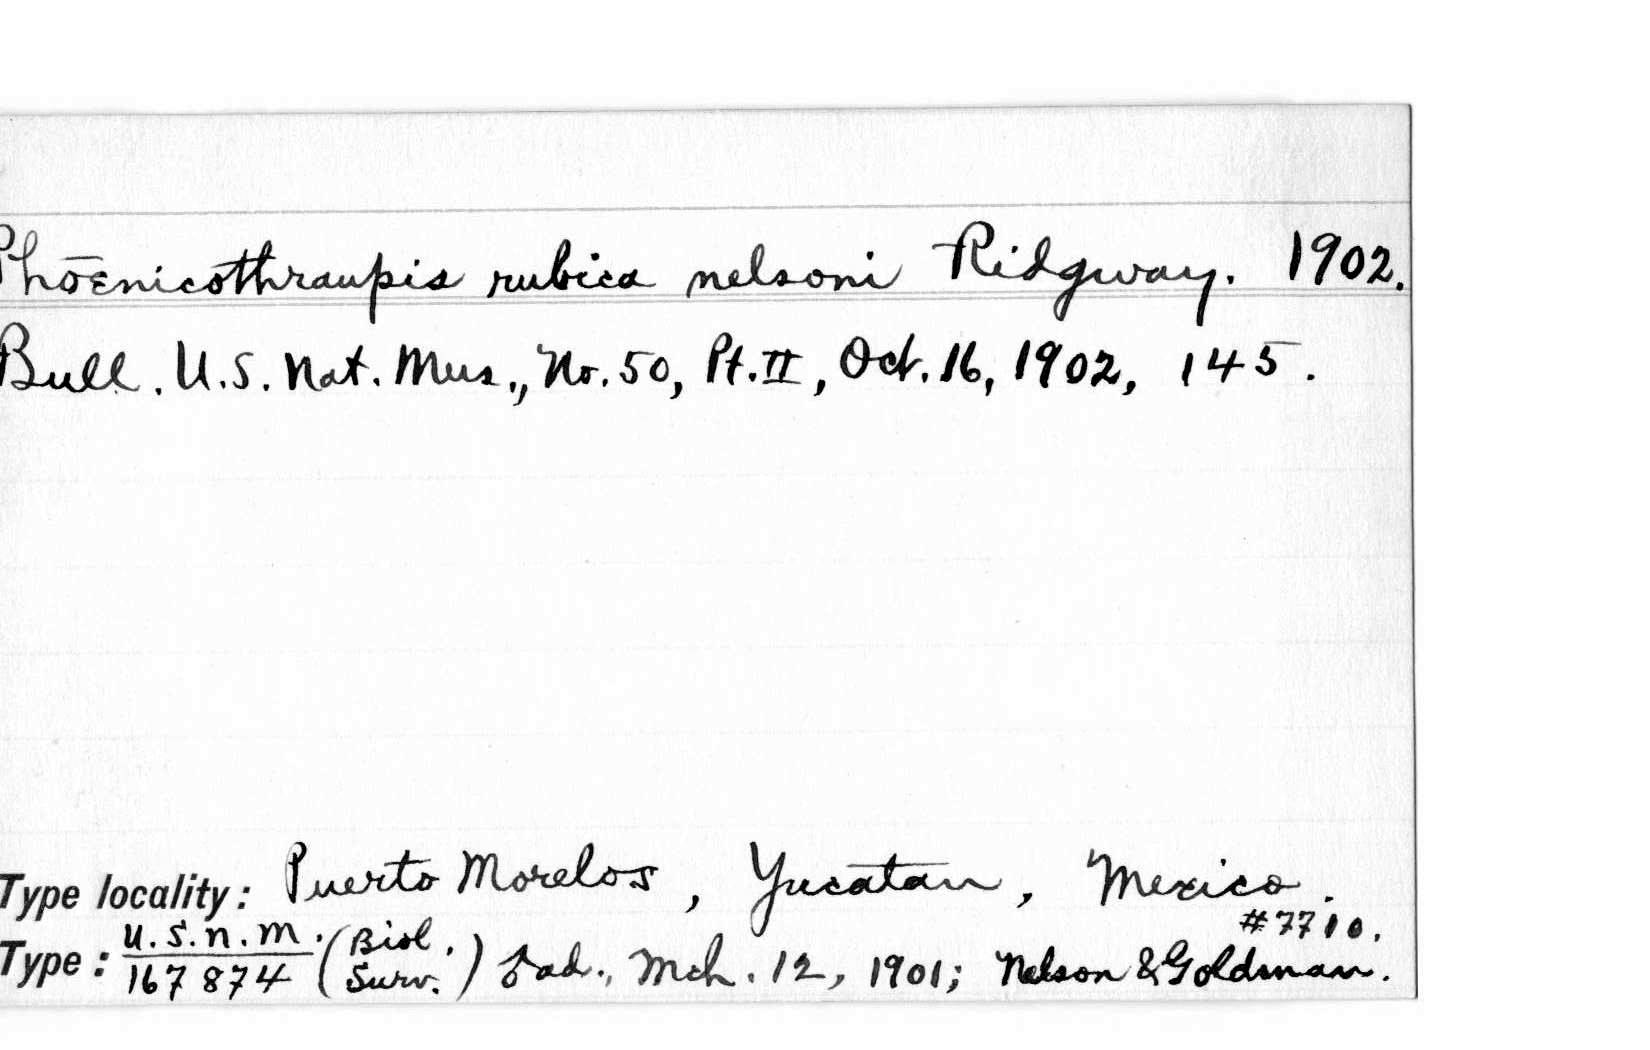 Phoenicothraupis rubica nelsoni Ridgway. 1902.
Bull. U.S. Nat. Mus., No. 50, Pt. II, Oct. 16, 1902, 145.
Type locality: Puerto Morelos, Yucatan, Mexico.
#7710.
Type: U.S.N.M. 167874 (Biol. Surv.) ♂ ad., Mch. 12, 1901; Nelson & Goldman.